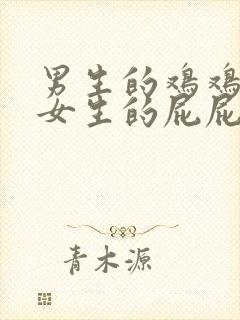 男生的鸡鸡
女生的屁屁
青木源